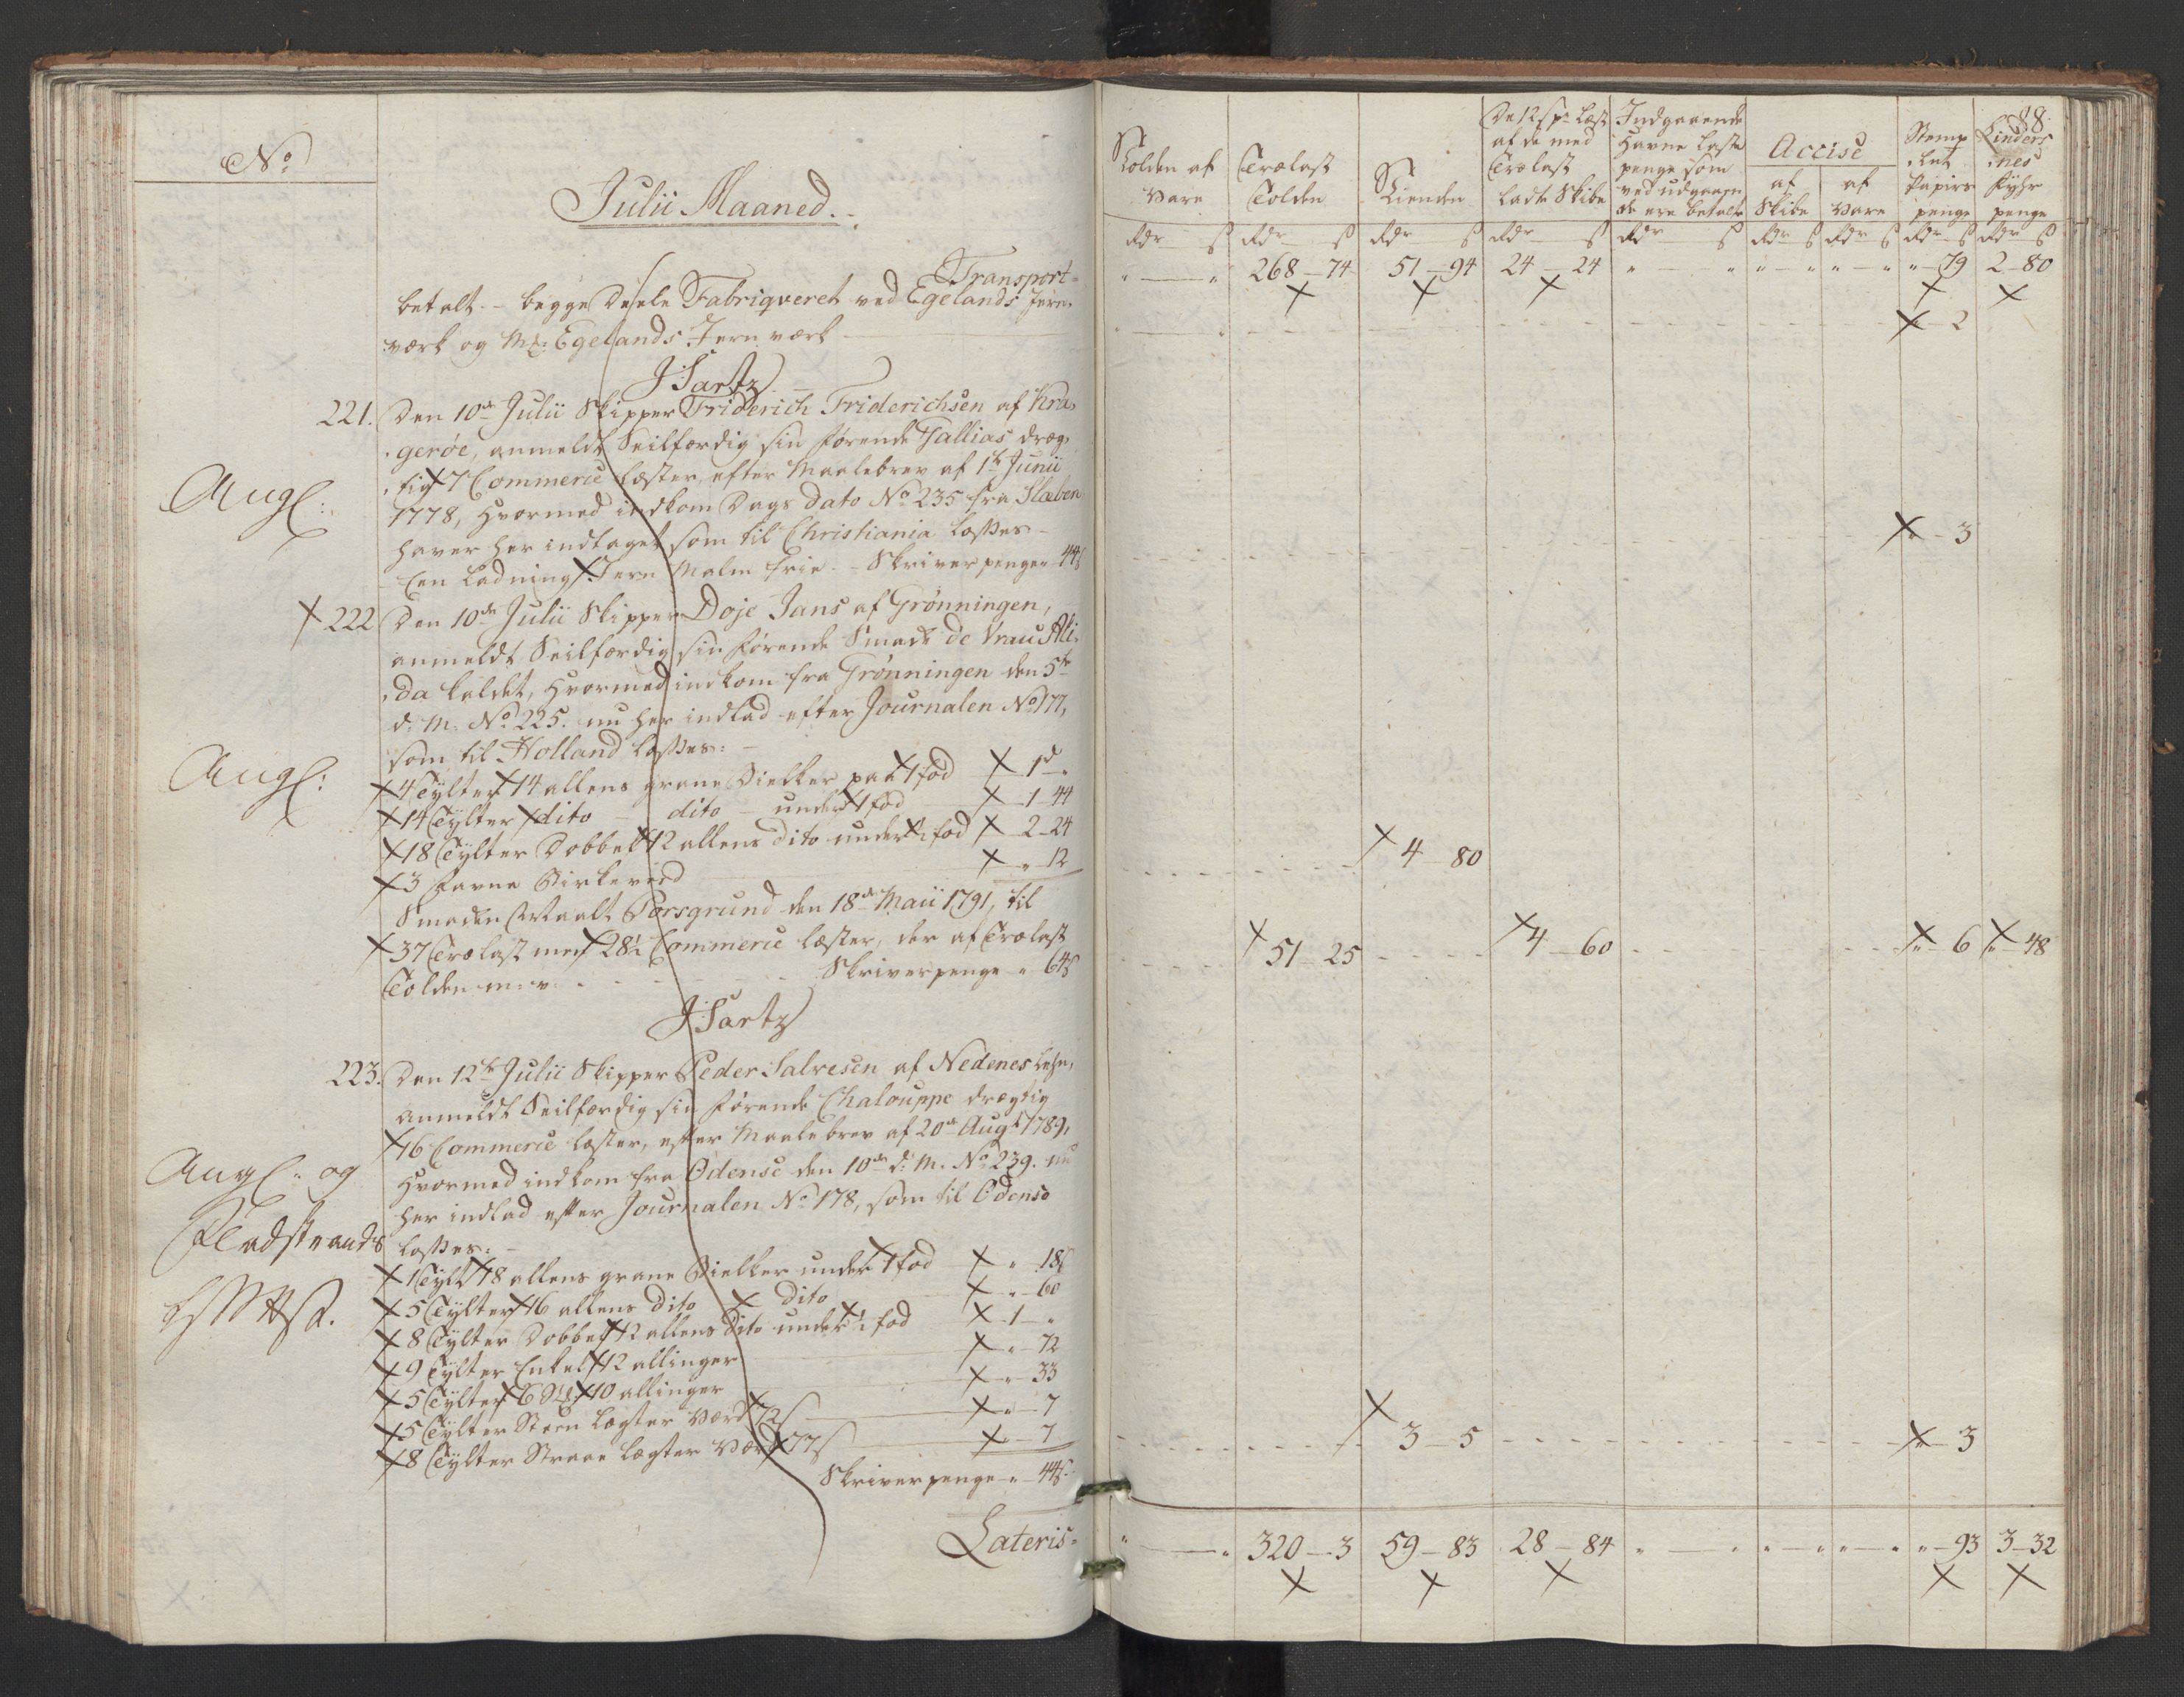 No
Julii Maaned.
Transport
betalt. - begge Deele Fabriqveret ved Egelands Jern-
værk og Mr: Egelands Jernværk
J Sartz
221. Den 10de Julii Skipper Friderich Friderichsen af Kra-
gerøe, anmeldt Seilfærdig sin førende Jallias dræg-
tig 7 Commerce Læster, efter Maalebrev af 1te Junii
Angl:
1778, hvormed indkom Dags dato No 235 fra Slæben
haver her indtaget som til Christiania losses
Een Ladning Jern Malm frie. - Skriverpenge " 44s
222 Den 10de Julii Skipper Doje Jans af Grønningen,
anmeldt Seilfærdig sin førende Smack de Vrau Ali-
da kaldet, hvormed indkom fra Grønningen den 5te
d: M: No 225. nu her indlad efter Journalen No 177,
som til Holland losses:
Angl:
4 Tylter 14 allens grane Bielker paa 1 fod 1d "
14 Tylter dito dito under 1 fod 1 - 44
18 Tylter Dobbelt 12 allens dito under 1/2 fod 2 - 24
3 favne Birkeved " 12
Smacken Maalt Porsgrund den 18de Maii 1791, til
37 Trælast med 28 1/2 Commerce læster, der af Trælast
Tolden m: v: Skriverpenge " 64s
J Sartz
223. Den 12te Julii Skipper Peder Salvesen af Nedenes Lehn,
anmeldt Seilfærdig sin førende Chalouppe drægtig
16 Commerce læster, efter Maalebrev af 20de Augt 1789,
Angl: og
hvormed indkom fra Odense den 10de d: M. No 239. nu
her indlad efter Journalen No 178, som til Odense
Fladstrands
losses:
1 Tylt 18 allens grane Bielker under 1 fod " 18s
5 Tylter 16 allens dito dito " 60
8 Tylter Dobbelt 12 allens dito under 1/2 fod 1 "
9 Tylter Enkelt 12 allinger " 72
5 Tylter 6 10 allinger " 33
5 Tylter Steen Lægter Værd 72s " 7
8 Tylter Straae Lægter Værd 77s " 7
Skriverpenge " 44s
Lateris
88.
Tolden af Vare
Trælast Tolden
Tienden
De 12s pr Læst af de med Trælast ladte Skibe
Indgaaende Havne Laste penge som ved udgaaende ere betalte
Accise
af Skibe
af Vare
Stemplet Papirs penge
Linders nes Fyhr penge
Rdr s Rdr s Rdr s Rdr s Rdr s Rdr s Rdr s Rdr s Rdr s
" " 268 - 74 51 - 94 24 - 24 " " " " " " " - 79 2 - 80
" - 2
" - 3
4 - 80
51 - 25 4 - 60 " - 6 " - 48
3 - 5 " - 3
" " 320 - 3 59 - 83 28 - 84 " " " " " " " - 93 3 - 32